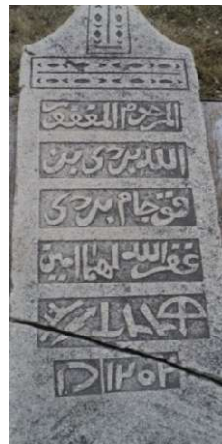 المرحوم المغفور
الله بردی بن
قوجام بردی
غفرالله لهما امین
١٢٥٢